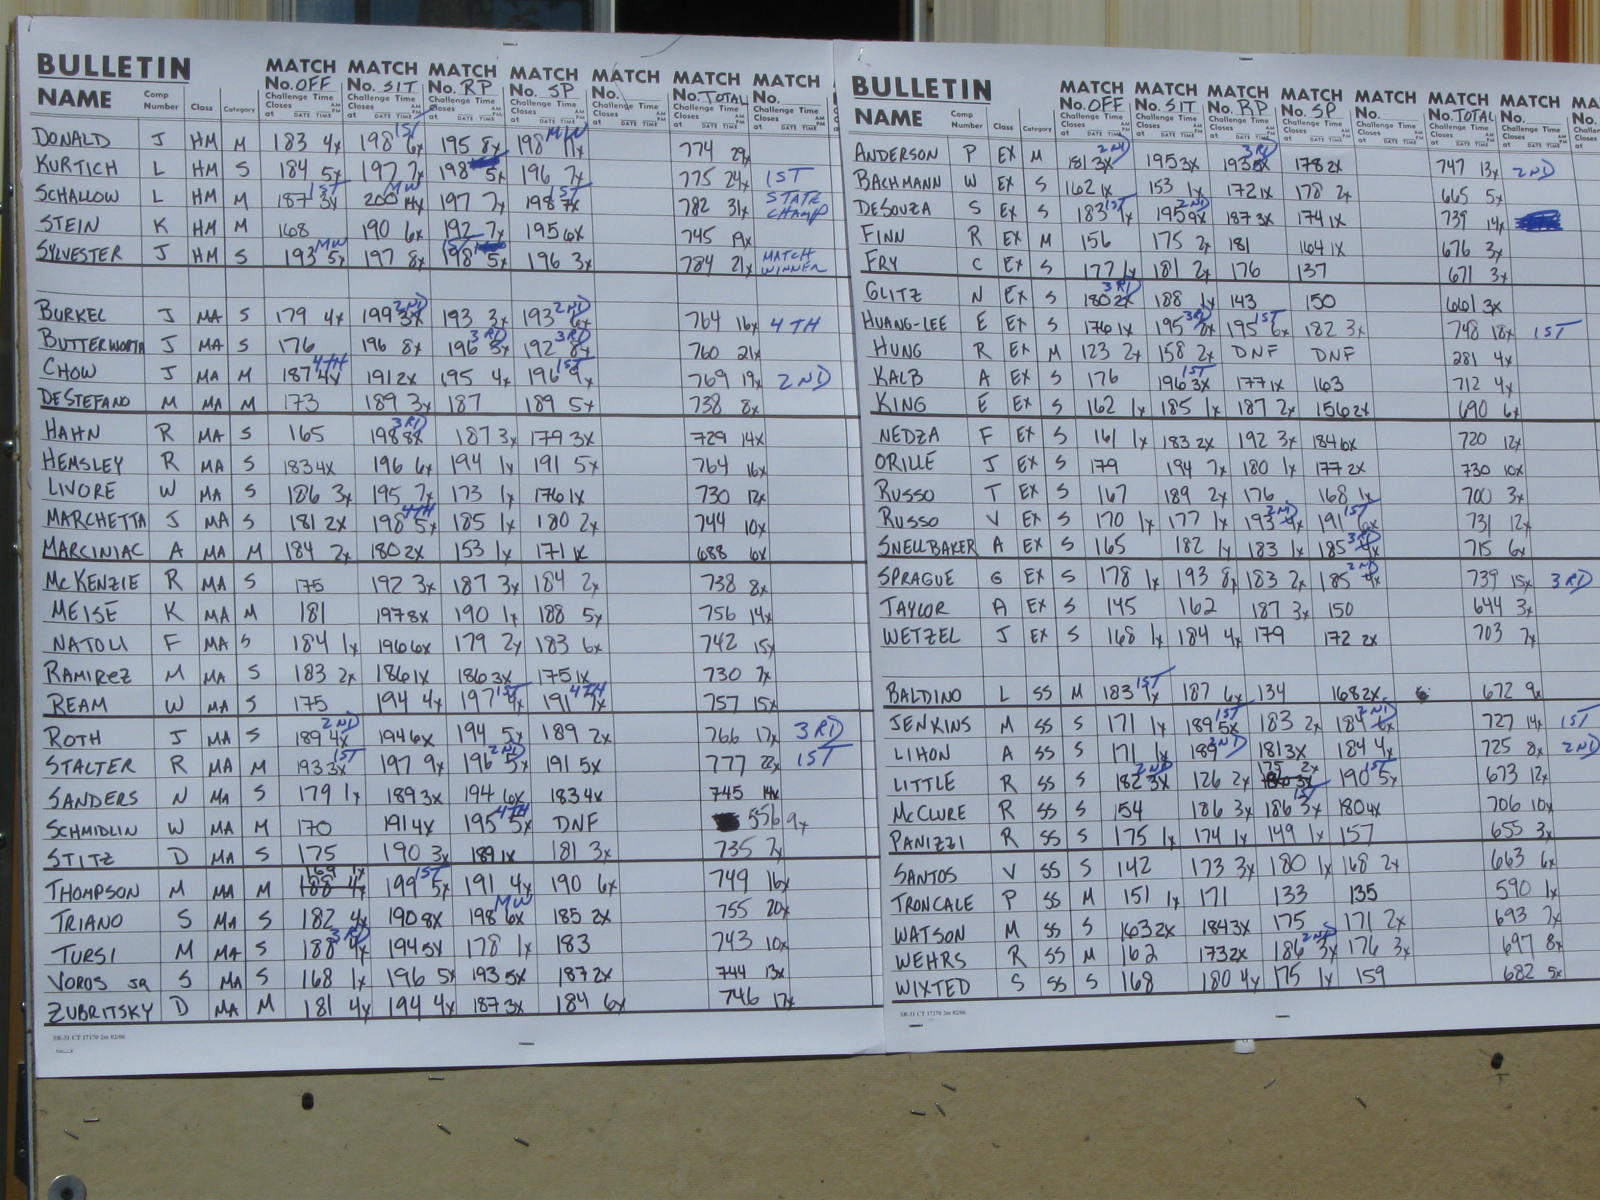 BULLETIN MATCH MATCH MATCH MATCH MATCH MATCH MATCH
NAME Comp Number Class Category No. OFF No. SIT No. RP No. SP No. No. TOTAL No.
Challenge Time Closes at DATE TIME AM PM
DONALD J HM M 183 4x 198 6x 1ST 195 8x 198 11x MW 774 29x
KURTICH L HM S 184 5x 197 7x 198 5x 196 7x 775 24x 1ST
SCHALLOW L HM M 187 3x 1ST 200 14x MW 197 7x 198 7x 1ST 782 31x STATE CHAMP
STEIN K HM M 168 190 6x 192 7x 195 6x 745 19x
SYLVESTER J HM S 193 5x MW 197 8x 198 5x 1ST 196 3x 784 21x MATCH WINNER
BURKEL J MA S 179 4x 199 3x 2ND 193 3x 193 6x 2ND 764 16x 4TH
BUTTERWORTH J MA S 176 196 8x 196 5x 3RD 192 8x 3RD 760 21x
CHOW J MA M 187 4x 4TH 191 2x 195 4x 196 9x 1ST 769 19x 2ND
DESTEFANO M MA M 173 189 3x 187 189 5x 738 8x
HAHN R MA S 165 198 8x 3RD 187 3x 179 3x 729 14x
HEMSLEY R MA S 183 4x 196 6x 194 1x 191 5x 764 16x
LIVORE W MA S 186 3x 195 7x 173 1x 176 1x 730 12x
MARCHETTA J MA S 181 2x 198 5x 4TH 185 1x 180 2x 744 10x
MARCINIAC A MA M 184 2x 180 2x 153 1x 171 1x 688 6x
McKENZIE R MA S 175 192 3x 187 3x 184 2x 738 8x
MEISE K MA M 181 197 8x 190 1x 188 5x 756 14x
NATOLI F MA S 184 1x 196 6x 179 2x 183 6x 742 15x
RAMIREZ M MA S 183 2x 186 1x 186 3x 175 1x 730 7x
REAM W MA S 175 194 4x 197 4x 1ST 191 7x 4TH 757 15x
ROTH J MA S 189 4x 2ND 194 6x 194 5x 189 2x 766 17x 3RD
STALTER R MA M 193 3x 1ST 197 9x 196 5x 2ND 191 5x 777 22x 1ST
SANDERS N MA S 179 1x 189 3x 194 6x 183 4x 745 14x
SCHMIDLIN W MA M 170 191 4x 195 5x 4TH DNF 556 9x
STITZ D MA S 175 190 3x 189 1x 181 3x 735 7x
THOMPSON M MA M 169 1x 188 4x 199 5x 1ST 191 4x 190 6x 749 16x
TRIANO S MA S 182 4x 190 8x 198 6x MW 185 2x 755 20x
TURSI M MA S 188 4x 3RD 194 5x 178 1x 183 743 10x
VOROS SR S MA S 168 1x 196 5x 193 5x 187 2x 744 13x
ZUBRITSKY D MA M 181 4x 194 4x 187 3x 184 6x 746 17x
SR-51 CT 17170 2m 02/06
BULLETIN MATCH MATCH MATCH MATCH MATCH MATCH MATCH
NAME Comp Number Class Category No. OFF No. SIT No. RP No. SP No. No. TOTAL No.
Challenge Time Closes at DATE TIME AM PM
ANDERSON P EX M 181 3x 2ND 195 3x 193 3RD 178 2x 747 13x 2ND
BACHMANN W EX S 162 1x 153 1x 172 1x 178 2x 665 5x
DESOUZA S EX S 183 1x 1ST 195 9x 2ND 187 3x 174 1x 739 14x
FINN R EX M 156 175 2x 181 164 1x 676 3x
FRY C EX S 177 1x 181 2x 176 137 671 3x
GLITZ N EX S 180 2x 3RD 188 1x 143 150 661 3x
HUANG-LEE E EX S 176 1x 195 8x 3RD 195 6x 1ST 182 3x 748 18x 1ST
HUNG R EX M 123 2x 158 2x DNF DNF 281 4x
KALB A EX S 176 196 3x 1ST 177 1x 163 712 4x
KING E EX S 162 1x 185 1x 187 2x 156 2x 690 6x
NEDZA F EX S 161 1x 183 2x 192 3x 184 6x 720 12x
ORILLE J EX S 179 194 7x 180 1x 177 2x 730 10x
RUSSO T EX S 167 189 2x 176 168 1x 700 3x
RUSSO V EX S 170 1x 177 1x 193 4x 2ND 191 6x 1ST 731 12x
SNELLBAKER A EX S 165 182 1x 183 1x 185 4x 3RD 715 6x
SPRAGUE G EX S 178 1x 193 8x 183 2x 185 4x 2ND 739 15x 3RD
TAYLOR A EX S 145 162 187 3x 150 644 3x
WETZEL J EX S 168 1x 184 4x 179 172 2x 703 7x
BALDINO L SS M 183 1x 1ST 187 6x 134 168 2x 672 9x
JENKINS M SS S 171 1x 189 5x 1ST 183 2x 184 6x 2ND 727 14x 1ST
LIHON A SS S 171 1x 189 2ND 181 3x 184 4x 725 8x 2ND
LITTLE R SS S 182 3x 2ND 126 2x 175 2x 190 5x 1ST 673 12x
McCLURE R SS S 154 186 3x 186 3x 1ST 180 4x 706 10x
PANIZZI R SS S 175 1x 174 1x 149 1x 157 655 3x
SANTOS V SS S 142 173 3x 180 1x 168 2x 663 6x
TRONCALE P SS M 151 1x 171 133 135 590 1x
WATSON M SS S 163 2x 184 3x 175 171 2x 693 7x
WEHRS R SS M 162 173 2x 186 3x 2ND 176 3x 697 8x
WIXTED S SS S 168 180 4x 175 1x 159 682 5x
SR-51 CT 17170 2m 02/06